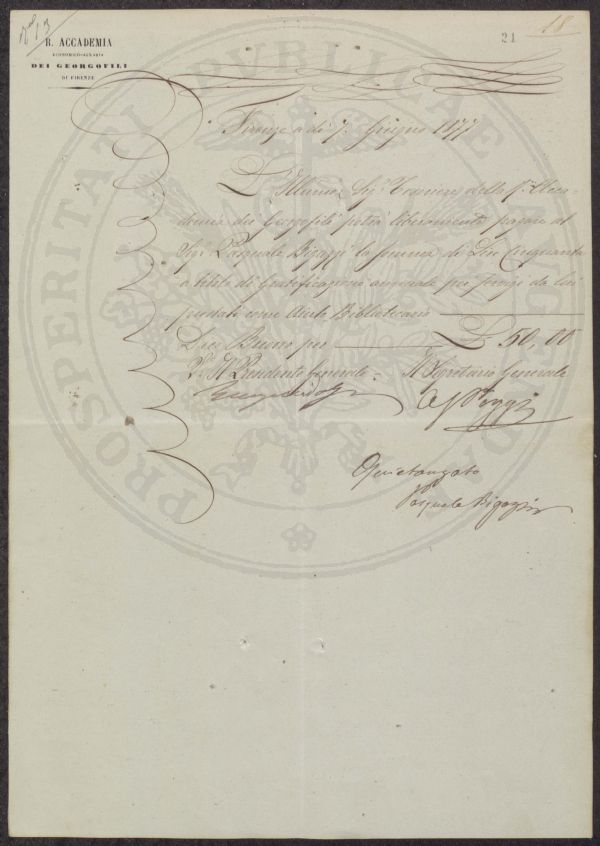 N° 13
18
21
R. ACCADEMIA
ECONOMICO-AGRARIA
DEI GEORGOFILI
DI FIRENZE
PROSPERITATI PUBLICAE AUGENDAE
Firenze a dì 7. Giugno 1877
L'Illumo Sigr Tesoriere della R. Acca-
demia dei Georgofili potrà liberamente pagare al
Sigr Pasquale Bigazzi la somma di Lire Cinquanta
a titolo di Gratificazione annuale pei servigi da lui
prestati come Aiuto Bibliotecario
Dico Buono per L 50,00
V. Il Presidente Generale. Il Segretario Generale
Quietanzato
Pasquale Bigazzi